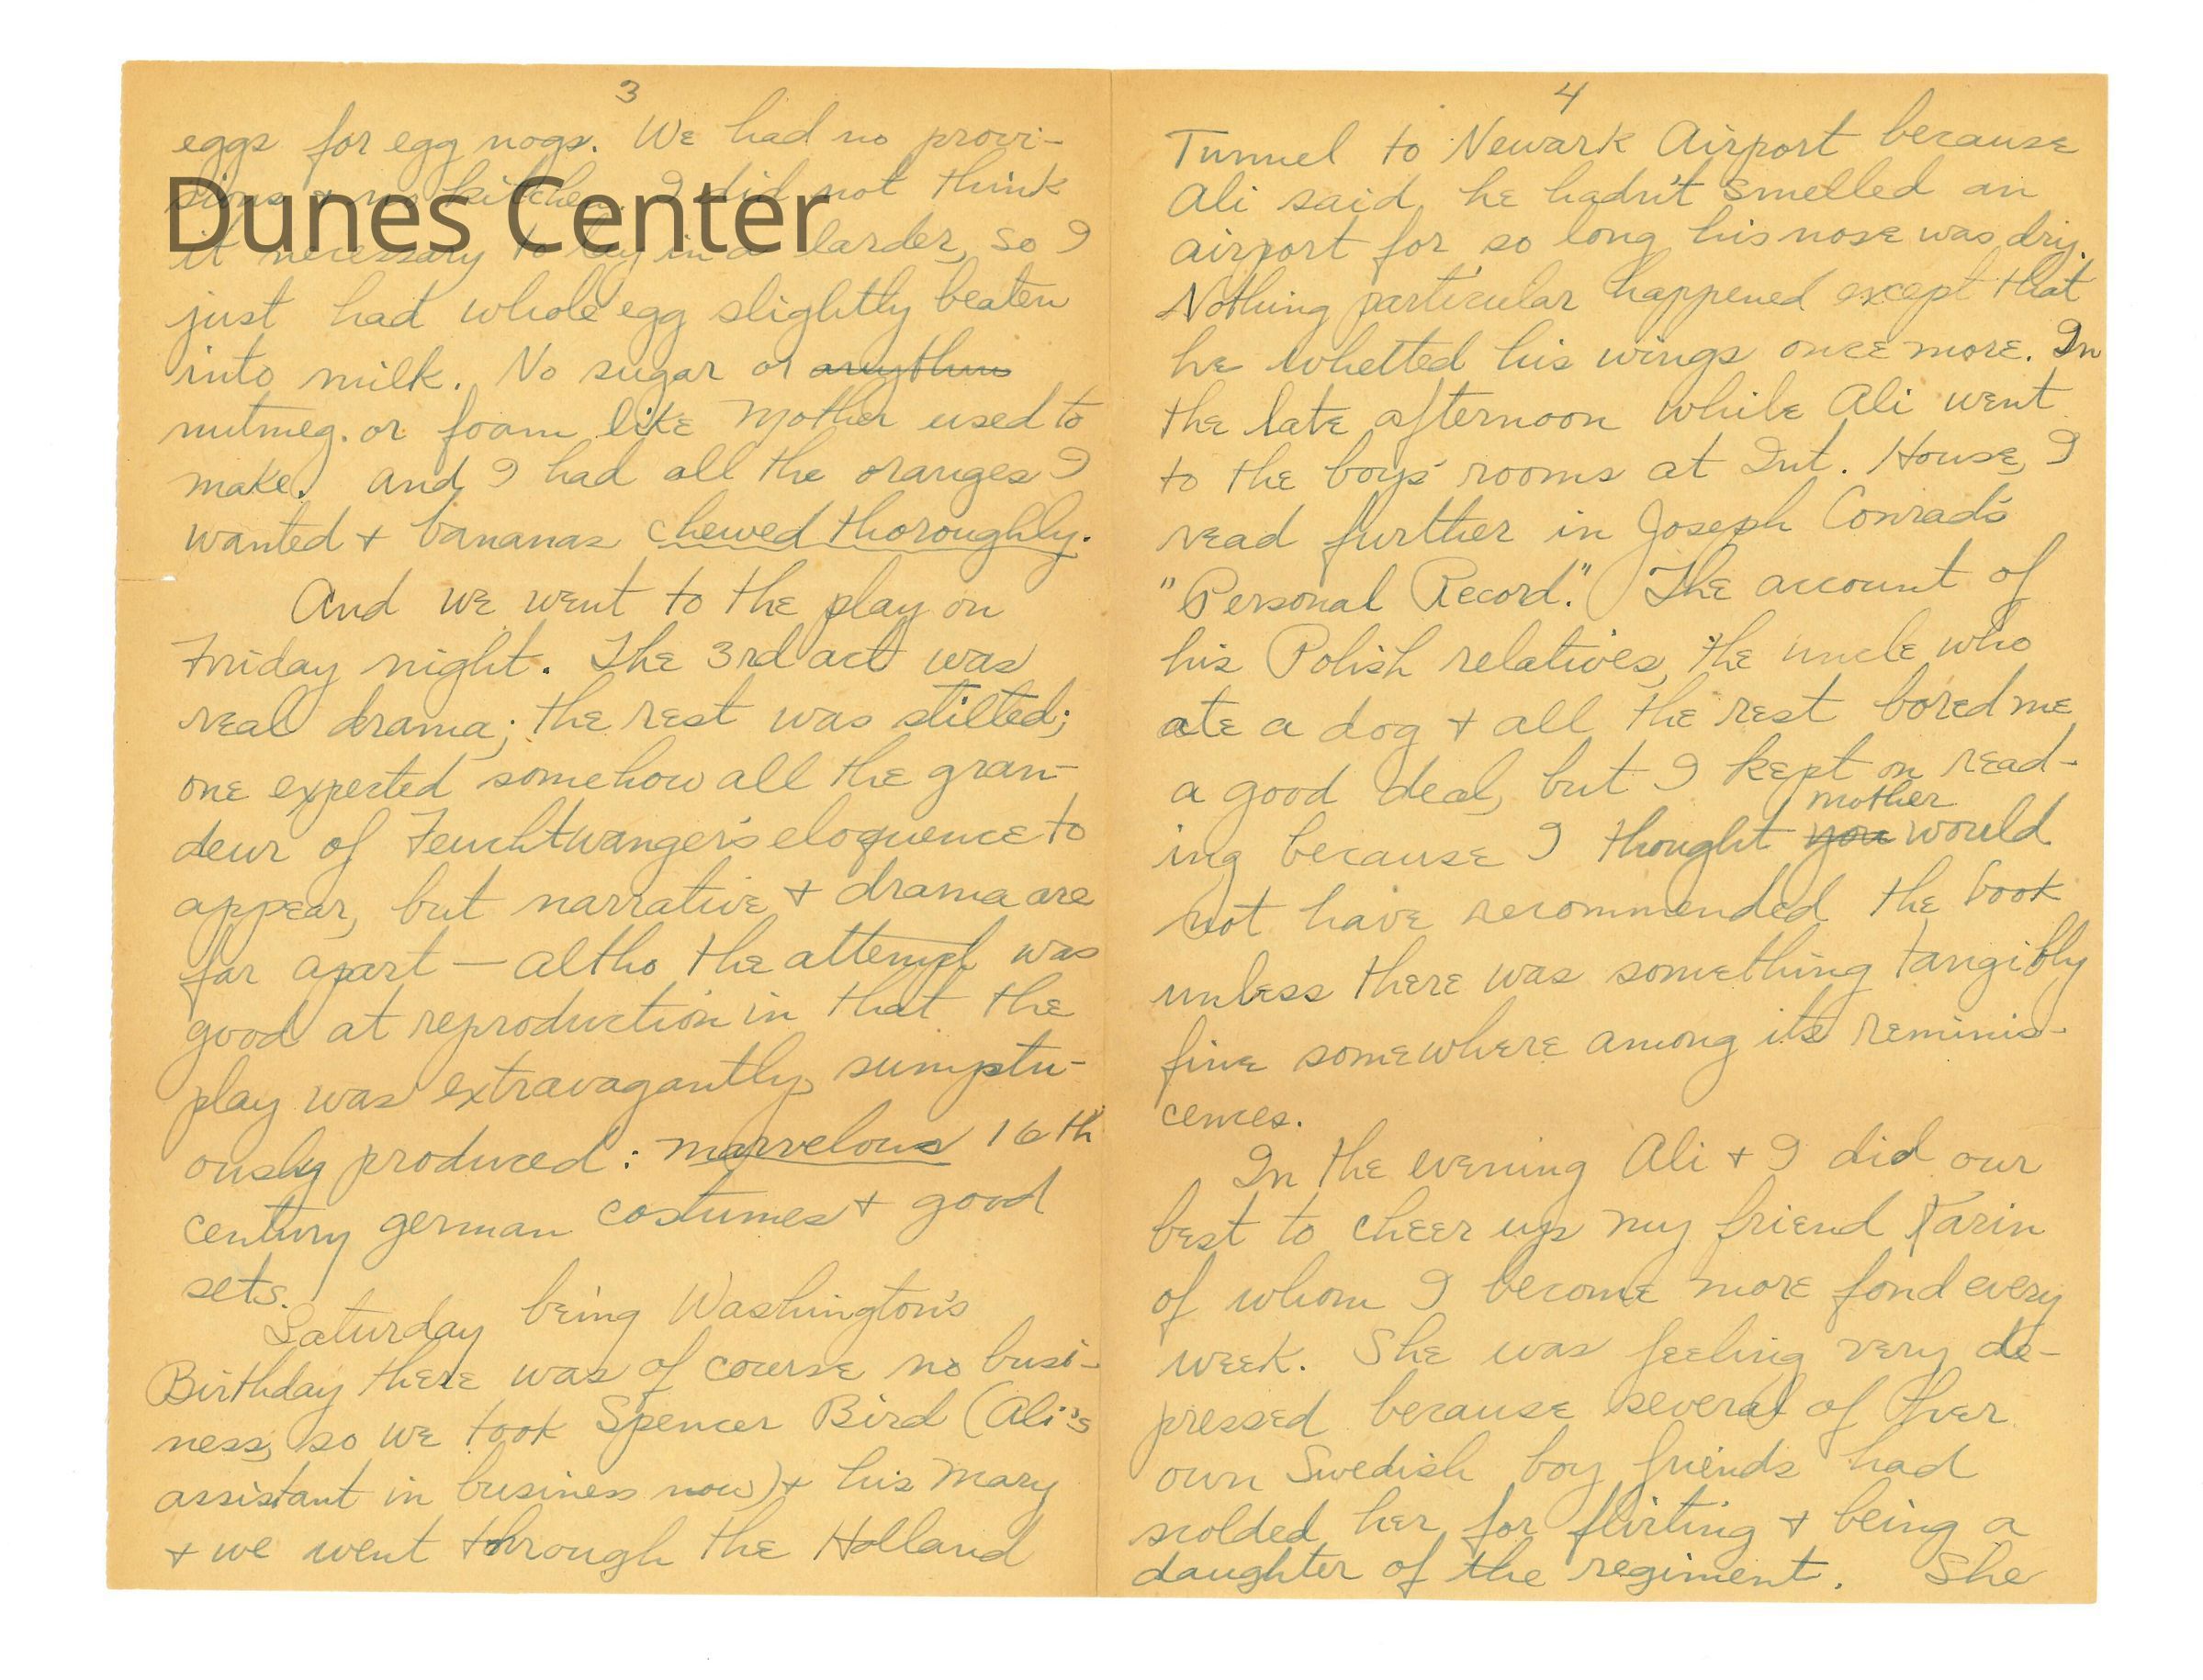 3
eggs for egg nogs. We had no provi-
sions & no kitchen. I did not think
Dunes Center
it necessary to lay in a larder, so I
just had whole egg slightly beaten
into milk. No sugar or anythin
nutmeg. or foam like Mother used to
make. And I had all the oranges I
wanted + bananas chewed thoroughly.
And we went to the play on
Friday night. The 3rd act was
real drama; the rest was stilted;
one expected somehow all the gran-
deur of Feuchtwanger's eloquence to
appear, but narrative + drama are
far apart — altho the attempt was
good at reproduction in that the
play was extravagantly sumptu-
ously produced: marvelous 16th
century german costumes + good
sets.
Saturday being Washington's
Birthday there was of course no busi-
ness, so we took Spencer Bird (Ali's
assistant in business now) + his Mary
+ we went through the Holland
4
Tunnel to Newark Airport because
Ali said he hadn't smelled an
airport for so long his nose was dry.
Nothing particular happened except that
he whetted his wings once more. In
the late afternoon while Ali went
to the boys' rooms at Int. House, I
read further in Joseph Conrad's
"Personal Record." The account of
his Polish relatives, the uncle who
ate a dog + all the rest bored me
a good deal, but I kept on read-
mother
ing because I thought you would
not have recommended the book
unless there was something tangibly
fine somewhere among its reminis-
cences.
In the evening Ali + I did our
best to cheer up my friend Karin
of whom I become more fond every
week. She was feeling very de-
pressed because several of her
own Swedish boy friends had
scolded her for flirting + being a
daughter of the regiment. She